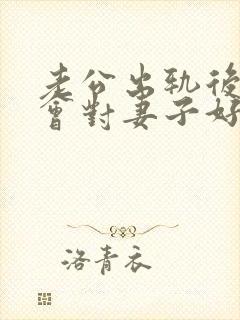 老公出轨後
會對妻子好
洛青衣